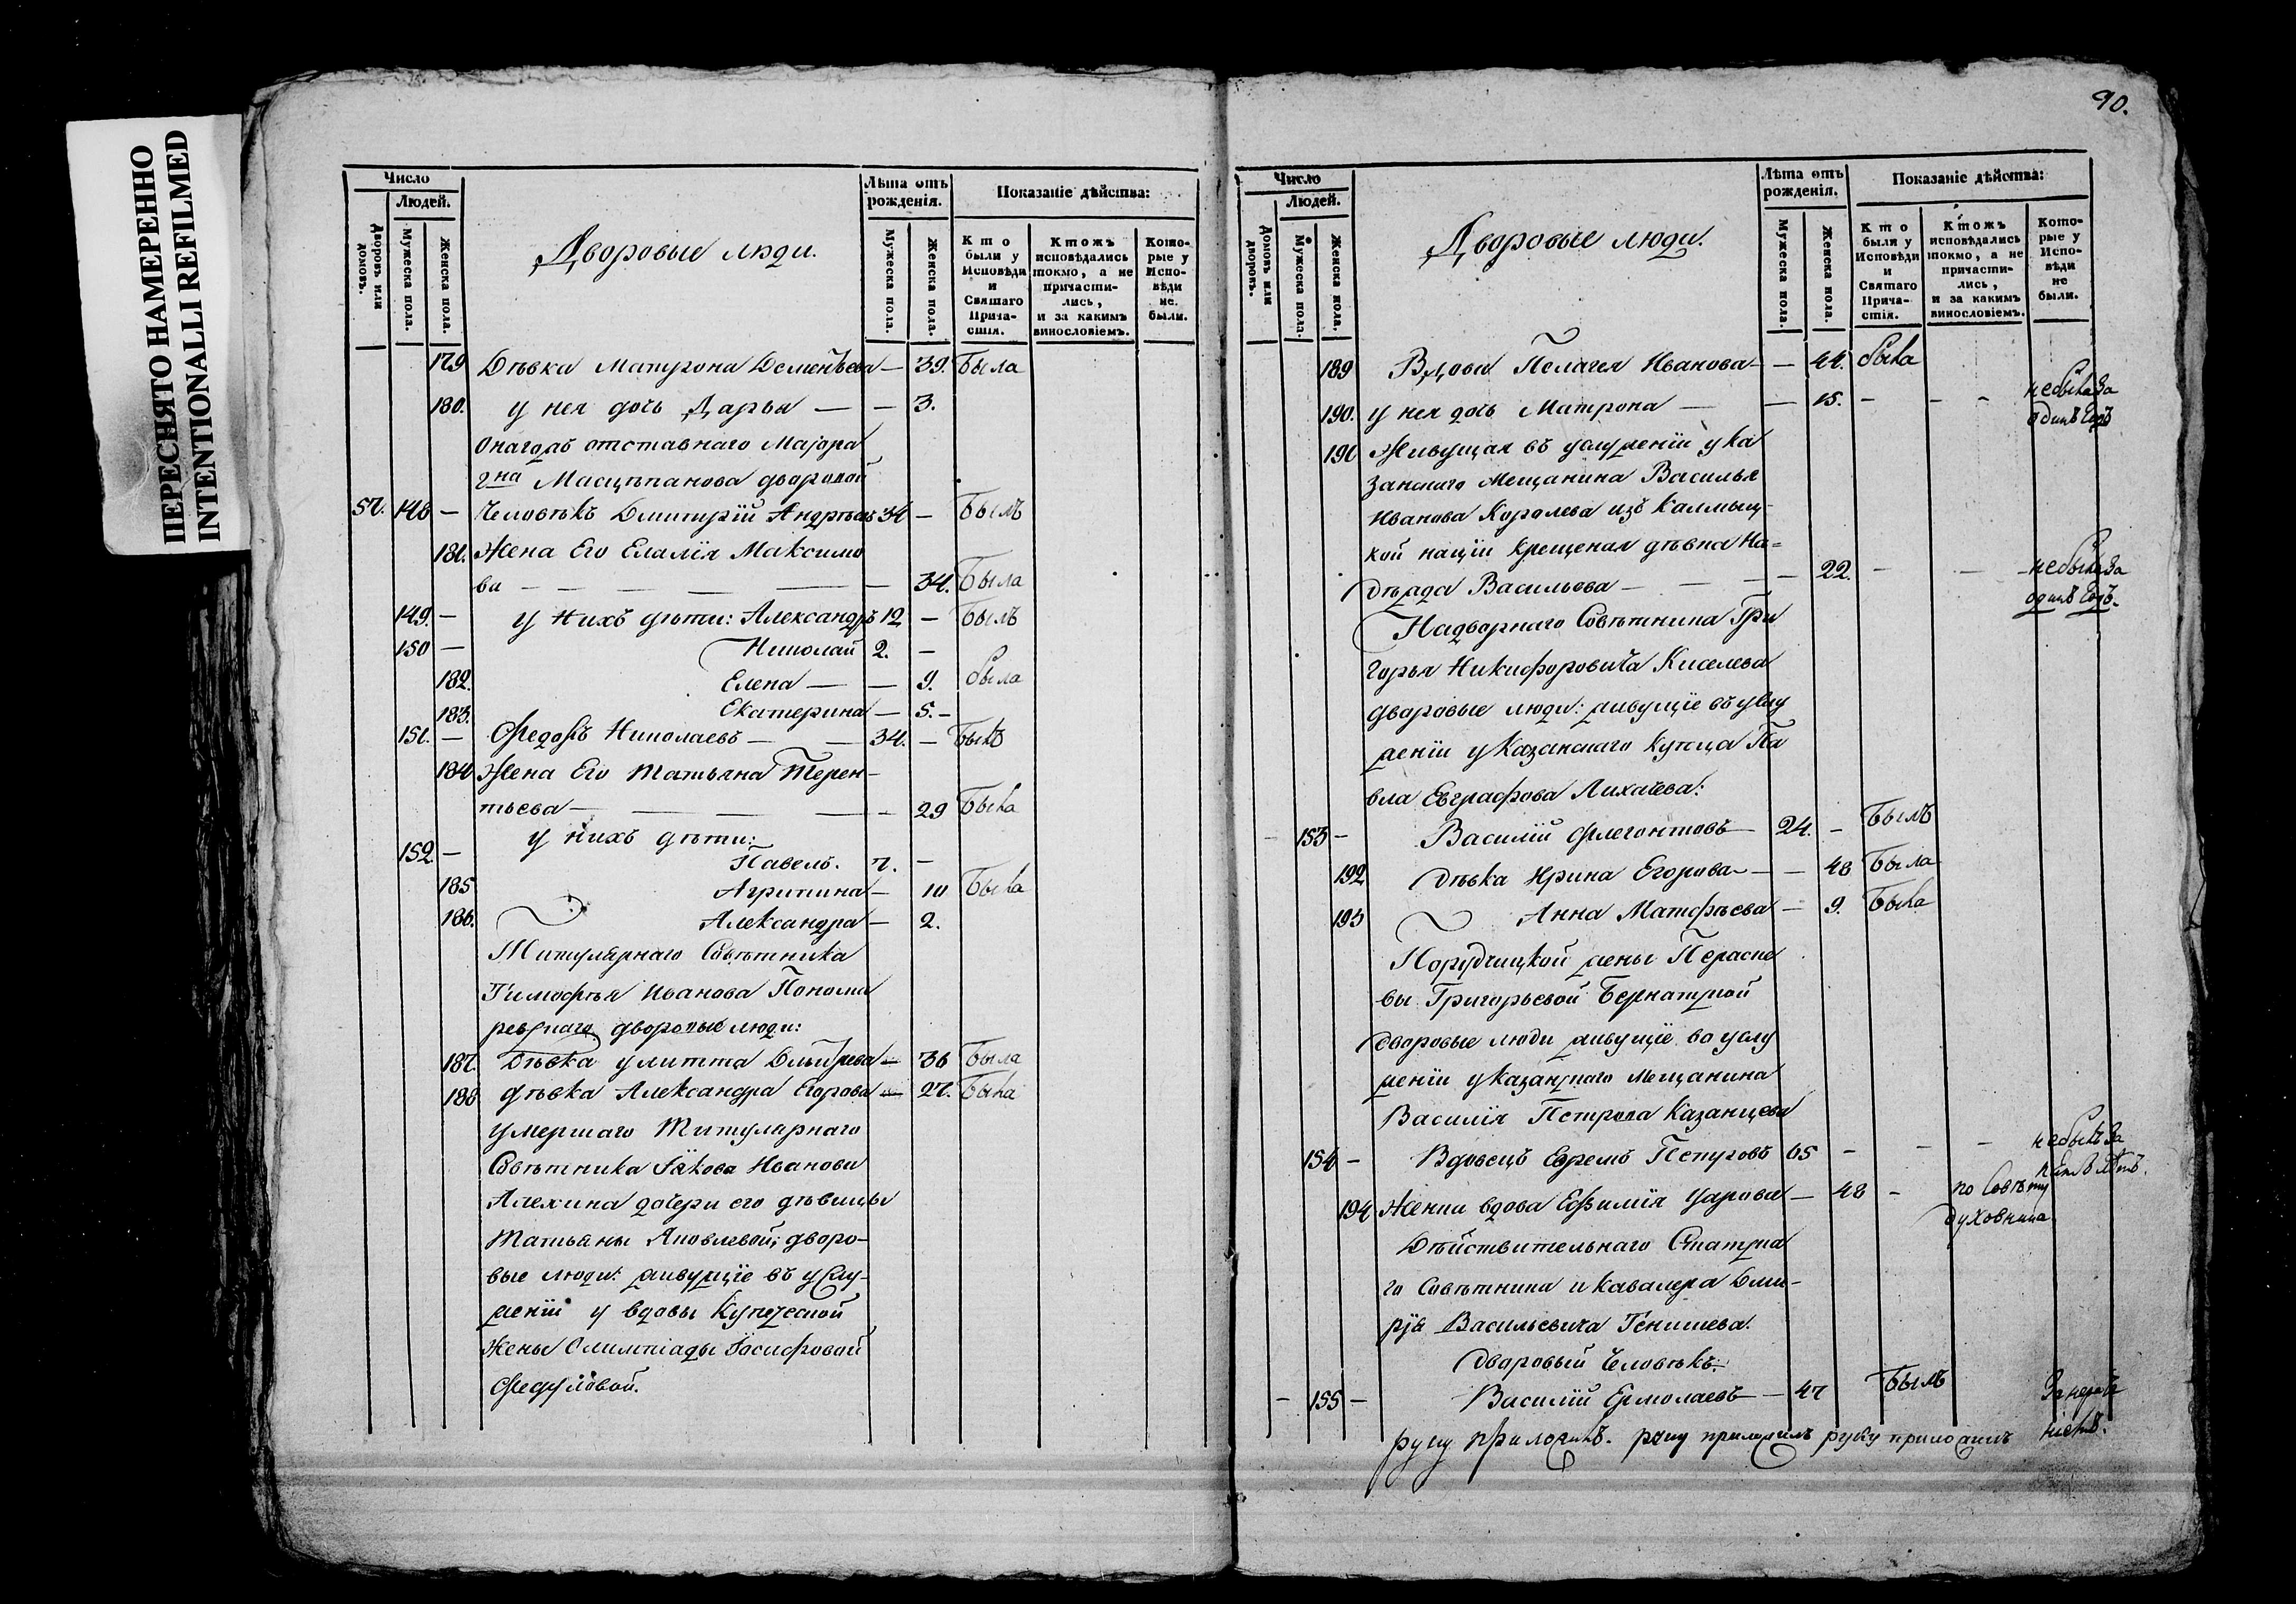 ПЕРЕСНЯТО НАМЕРЕННО
INTENTIONALLI REFILMED
Число
Людей.
Дворовъ или домовъ.
Мужеска пола.
Женска пола.
Дворовые люди.
Лѣта отъ рожденія.
Мужеска пола.
Женска пола.
Показаніе дѣйства:
Кто были у Исповѣди и Святаго Причастія.
Ктожъ исповѣдались токмо, а не причастились, и за какимъ винословіемъ.
Которые у Исповѣди не были.
179 Дѣвка Матрона Дементьева — 39. Была
180. у нея дочь Дарья — — 3.
Онагожъ отставнаго Маіора
гна Масцепанова дворовой
57. 148 — Человѣкъ Димитрій Андрѣевъ 34 — Былъ
181. Жена Его Елалія Максимо
ва — — — — — — 34. Была
149. — у Нихъ дѣти: Александръ 12 — Былъ
150 — Николай 2. —
182. Елена — — 9. была
183. Екатерина — 5. —
151. — Федоръ Николаевъ — — 34. — Былъ
184 Жена Его Татьяна Терен-
тьева — — — — — 29 Была
у нихъ дѣти:
152 — Павелъ. 7. —
185 Агрипина — 10 Была
186. Александра — 2.
Титулярнаго Совѣтника
Тимофѣя Иванова Понома
ревскаго дворовые люди:
187. Дѣвка улитта — 36 Была
188 дѣвка Александра Егорова — 27. Была
умершаго Титулярнаго
Совѣтника Іакова Иванова
Алехина дочери его дѣвицы
Татьяны Яковлевой, дворо-
вые люди: живущіе въ услу-
женіи у вдовы Купеческой
жены Олимпіады Іосифовой
Федуловой.
90.
Число
Людей.
Домовъ или дворовъ.
Мужеска пола.
Женска пола.
Дворовые люди.
Лѣта отъ рожденія.
Мужеска пола.
Женска пола.
Показаніе дѣйства:
Кто были у Исповѣди и Святаго Причастія.
Ктожъ исповѣдались токмо, а не причастились, и за какимъ винословіемъ.
Которые у Исповѣди не были.
189 Вдова Пелагея Иванова — — 44. была
190. у нея дочь Матрона — — 15. — — — небыла за
одинъ Годъ
191 Живущая въ услуженіи у ка
занскаго Мещанина Василья
Иванова Королева изъ Калмыц-
кой націи крещеная дѣвка На=
дѣжда Васильева — — — — 22. — — — небыла за
одинъ Годъ.
Надворнаго Совѣтника Гри
горья Никифоровича Киселева
дворовые люди: живущіе въ услу
женіи у Казанскаго Купца Па
вла Евграфова Лихачева:
— 153 — Василій Флегонтовъ — 24. — Былъ
192 дѣвка Ирина Егорова — — 48 Была
193 Анна Матфѣева — 9. Была
Поручицкой жены Параске
вы Григорьевой
дворовые люди живущіе во услу
женіи у Казанскаго Мещанина
Василія Петрова Казанцева
154 — Вдовецъ Ефремъ Петровъ 65 — — — небылъ за
пять лѣтъ.
194 Женка вдова Ефимія Уарова — 48 — по Совѣту
духовника
Дѣйствительнаго Статска
го Совѣтника и Кавалера Дми-
рія Васильевича Тенишева.
дворовый Человѣкъ.
— 155 — Василій Ермолаевъ — 47 Былъ
руку приложилъ. руку приложилъ руку приложилъ